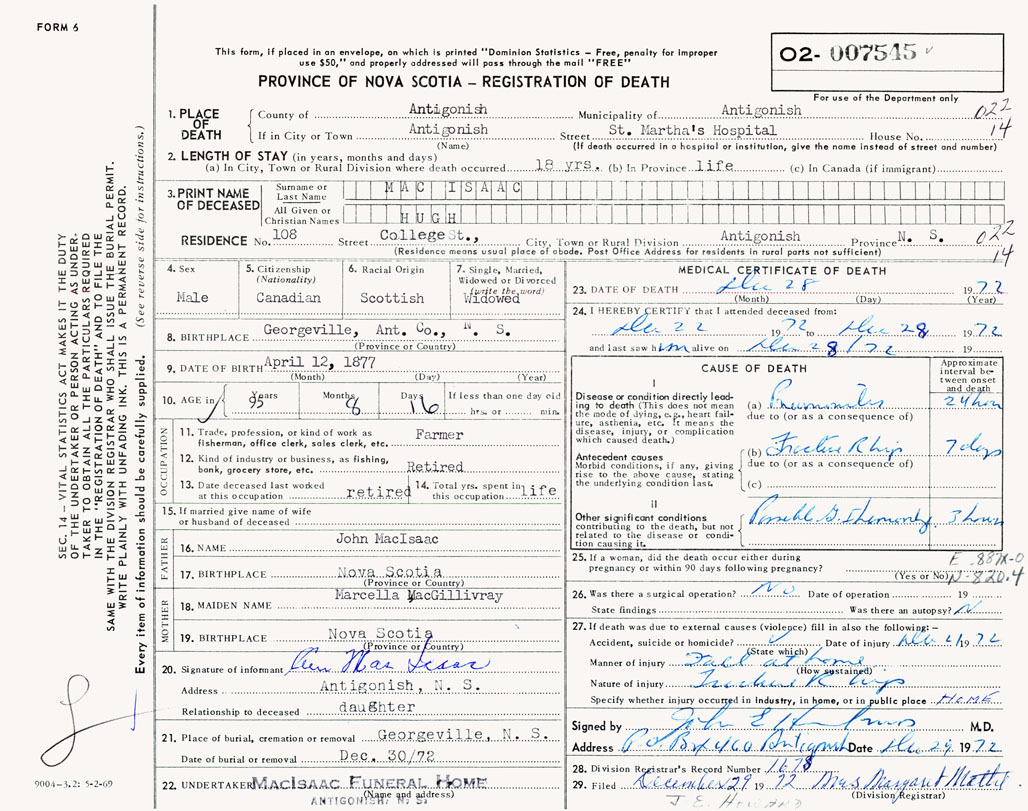 FORM 6
This form, if placed in an envelope, on which is printed "Dominion Statistics – Free, penalty for improper
use $50," and properly addressed will pass through the mail "FREE"
PROVINCE OF NOVA SCOTIA – REGISTRATION OF DEATH
02- 007545
For use of the Department only
1. PLACE OF DEATH
County of Antigonish Municipality of Antigonish 022
If in City or Town Antigonish Street St. Martha's Hospital House No. 14
(Name) (If death occurred in a hospital or institution, give the name instead of street and number)
2. LENGTH OF STAY (in years, months and days)
(a) In City, Town or Rural Division where death occurred 18 yrs. (b) In Province life (c) In Canada (if immigrant)
3. PRINT NAME OF DECEASED
Surname or Last Name MAC ISAAC
All Given or Christian Names HUGH
RESIDENCE No. 108 Street College St., City, Town or Rural Division Antigonish Province N. S. 022
(Residence means usual place of abode. Post Office Address for residents in rural parts not sufficient) 14
4. Sex
Male
5. Citizenship
(Nationality)
Canadian
6. Racial Origin
Scottish
7. Single, Married,
Widowed or Divorced
(write the word)
Widowed
8. BIRTHPLACE Georgeville, Ant. Co., N. S.
(Province or Country)
9. DATE OF BIRTH April 12, 1877
(Month) (Day) (Year)
10. AGE in Years 95 Months 8 Days 16 If less than one day old
hrs. or min.
OCCUPATION
11. Trade, profession, or kind of work as
fisherman, office clerk, sales clerk, etc. Farmer
12. Kind of industry or business, as fishing,
bank, grocery store, etc. Retired
13. Date deceased last worked
at this occupation retired
14. Total yrs. spent in
this occupation life
15. If married give name of wife
or husband of deceased
FATHER
16. NAME John MacIsaac
17. BIRTHPLACE Nova Scotia
(Province or Country)
MOTHER
18. MAIDEN NAME Marcella MacGillivray
19. BIRTHPLACE Nova Scotia
(Province or Country)
20. Signature of informant Mac Isaac
Address Antigonish, N. S.
Relationship to deceased daughter
21. Place of burial, cremation or removal Georgeville, N. S.
Date of burial or removal Dec. 30/72
22. UNDERTAKER MACISAAC FUNERAL HOME
(Name and address)
ANTIGONISH, N. S.
MEDICAL CERTIFICATE OF DEATH
23. DATE OF DEATH Dec 28 1972
(Month) (Day) (Year)
24. I HEREBY CERTIFY that I attended deceased from:
Dec 22 1972 to Dec 28 1972
and last saw him alive on Dec 28/72 19
CAUSE OF DEATH
Approximate interval between onset and death
I
Disease or condition directly leading to death (This does not mean the mode of dying, e.g., heart failure, asthenia, etc. It means the disease, injury, or complication which caused death.)
(a) Pneumonitis 24 hour
due to (or as a consequence of)
Antecedent causes
Morbid conditions, if any, giving rise to the above cause, stating the underlying condition last.
(b) Fracture R hip 7 days
due to (or as a consequence of)
(c)
II
Other significant conditions
contributing to the death, but not
related to the disease or condition causing it.
3 hours
25. If a woman, did the death occur either during
pregnancy or within 90 days following pregnancy?
(Yes or No)
E 887X-0
N-820.4
26. Was there a surgical operation? No Date of operation 19
State findings Was there an autopsy? N
27. If death was due to external causes (violence) fill in also the following: –
Accident, suicide or homicide? Date of injury Dec 21 1972
(State which)
Manner of injury Fall at home
(How sustained)
Nature of injury Fracture R hip
Specify whether injury occurred in industry, in home, or in public place HOME
Signed by John E M.D.
Address P O Box 460 Antigonish Date Dec 29 1972
28. Division Registrar's Record Number 1678
29. Filed December 29 1972 Mrs Margaret
(Division Registrar)
SEC. 14 – VITAL STATISTICS ACT MAKES IT THE DUTY
OF THE UNDERTAKER OR PERSON ACTING AS UNDERTAKER TO OBTAIN ALL THE PARTICULARS REQUIRED
IN THE "REGISTRATION OF DEATH" AND TO FILE THE
SAME WITH THE DIVISION REGISTRAR WHO SHALL ISSUE THE BURIAL PERMIT.
WRITE PLAINLY WITH UNFADING INK. THIS IS A PERMANENT RECORD.
Every item of information should be carefully supplied. (See reverse side for instructions.)
9004-3.2: 5-2-69